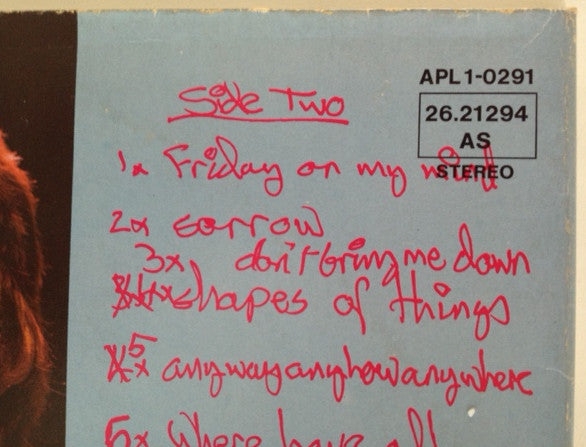 APL 1-0291
26.21294
AS
STEREO
Side Two
1x Friday on my mind
2x sorrow
3x, don't bring me down
shapes of things
5x anywayanyhowanywhere
5x Where have all